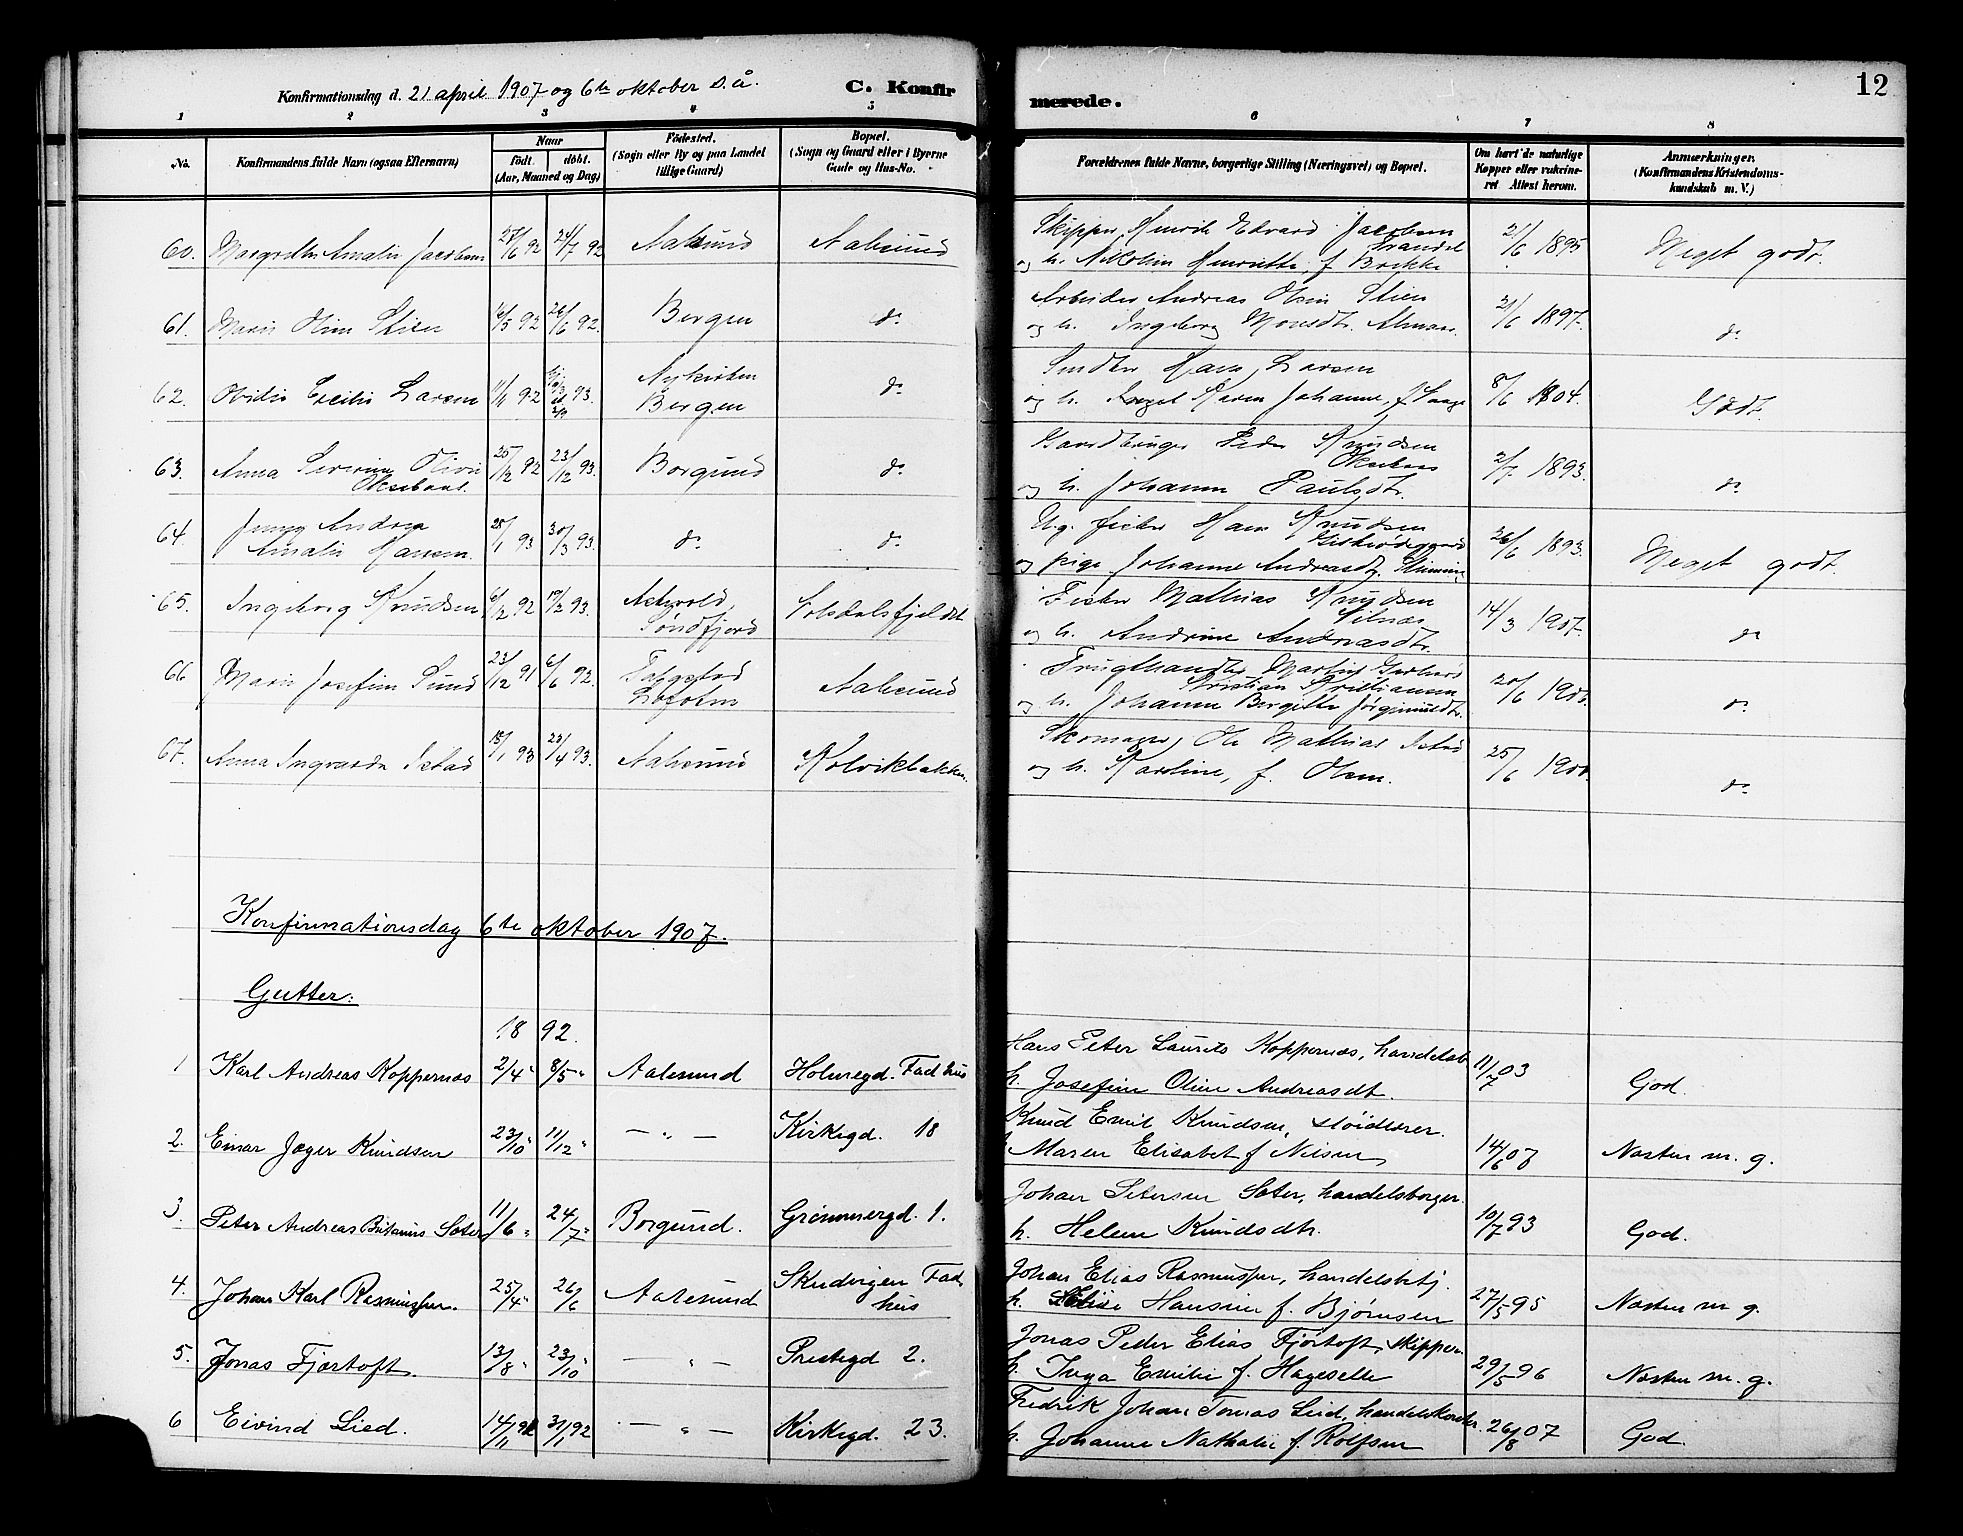 Konfirmationsdag d. 21 april 1907 og 6te oktober s. å.
C. Konfirmerede.
12
1 2 3 4 5 6 7 8
No.
Konfirmandens fulde Navn (ogsaa Efternavn)
Naar
født. døbt.
(Aar, Maaned og Dag)
Fødested.
(Sogn eller By og paa Landet
tillige Gaard)
Bopæl.
(Sogn og Gaard eller i Byerne
Gade og Hus-No.
Forældrenes fulde Navne, borgerlige Stilling (Næringsvei) og Bopæl.
Om havt de naturlige
Kopper eller vakcineret
Attest herom.
Anmærkninger.
(Konfirmandens Kristendoms-
kundskab m. V.)
60. Margrethe Amalie Jacobsen 27/6 92 24/7 92 Aalesund Aalesund
Skipper Henrik Edvard Jacobsen
og h. Nikoline Henriette, f. Brekke 21/6 1895 Meget godt.
61. Marie Olsen Stien 6/5 92 26/6 92. Bergen do
Arbeider Andreas Olsen Stien
og h. Ingeborg Monsdtr. 21/6 1897. do
62. Ovidia Cecilie Larsen 11/11 92 93. Nykirken
Bergen do
Hans Larsen
og h. Karen Johanne, f. 8/6 1904. Godt.
63. Anna Severine Olivie
25/12 92 23/12 93. Borgund do
Peder Knudsen
og h. Johanne Paulsdtr. 2/7 1893. do
64. Jenny Andrea
Amalie Hansen. 25/1 93 30/3 93. do do
Ug. fisker Hans Knudsen
og pige Johanne Andreasdtr. 26/6 1893. Meget godt.
65. Ingeborg Knudsen 6/12 92 19/2 93. Askvold,
Søndfjord Volsdalsfjeldet
Fisker Mathias Knudsen
og h. Andrine Andreasdtr. 14/3 1907. do
66 Marie Josefine Sund 23/12 91 6/6 92.
Lofoten Aalesund
Frugthandler Martin
Kristian Kristiansen
og h. Johanne Bergitte Jørginusdtr. 20/6 1900. do
67. Anna Ingvarda Istad 15/1 93 23/4 93. Aalesund Kolvikbakken
Skomager, Ole Mathias Istad
og h. Karoline, f. Olsen. 25/6 1900. do
Konfirmationsdag 6te oktober 1907.
Gutter:
18 92.
1 Karl Andreas Koppernæs 2/4 " 8/5 " Aalesund Holmegd. Fad hus
Hans Peter Laurits Koppernæs, handelsb.
h. Josefine Oline Andreasdt. 11/7 03 God.
2. Einar Jæger Knudsen 23/10 " 11/12 " — " — Kirkegd. 18
Knud Emil Knudsen, sløidlærer.
h. Maren Elisabet f Nilsen 14/6 07 Næsten m. g.
3. Peter Andreas Britanus Sæter 11/6 " 24/7 " Borgund. Grimmergd. 1.
Johan Petersen Sæter, handelsborger.
h. Helene Knudsdtr. 10/7 93 God.
4. Johan Karl Rasmussen. 25/4 " 26/6 Aalesund Skudvigen Fad
hus
Johan Elias Rasmussen, handelsbetj.
h. Hansine f. Bjørnsen 27/5 95 Næsten m. g.
5. Jonas Fjørtoft. 13/8 " 23/10 " — " — Prestegd 2.
Jonas Peder Elias Fjørtoft, skipper.
h. Inga Emilie f. Hageselle 29/5 96 Næsten m. g.
6 Eivind Lied. 14/11 91 31/1 92 — " — Kirkegd. 23.
Fredrik Johan Tomas Lied,
h. Johanne Nathalie f. Rolfsen 26/8 07 God.